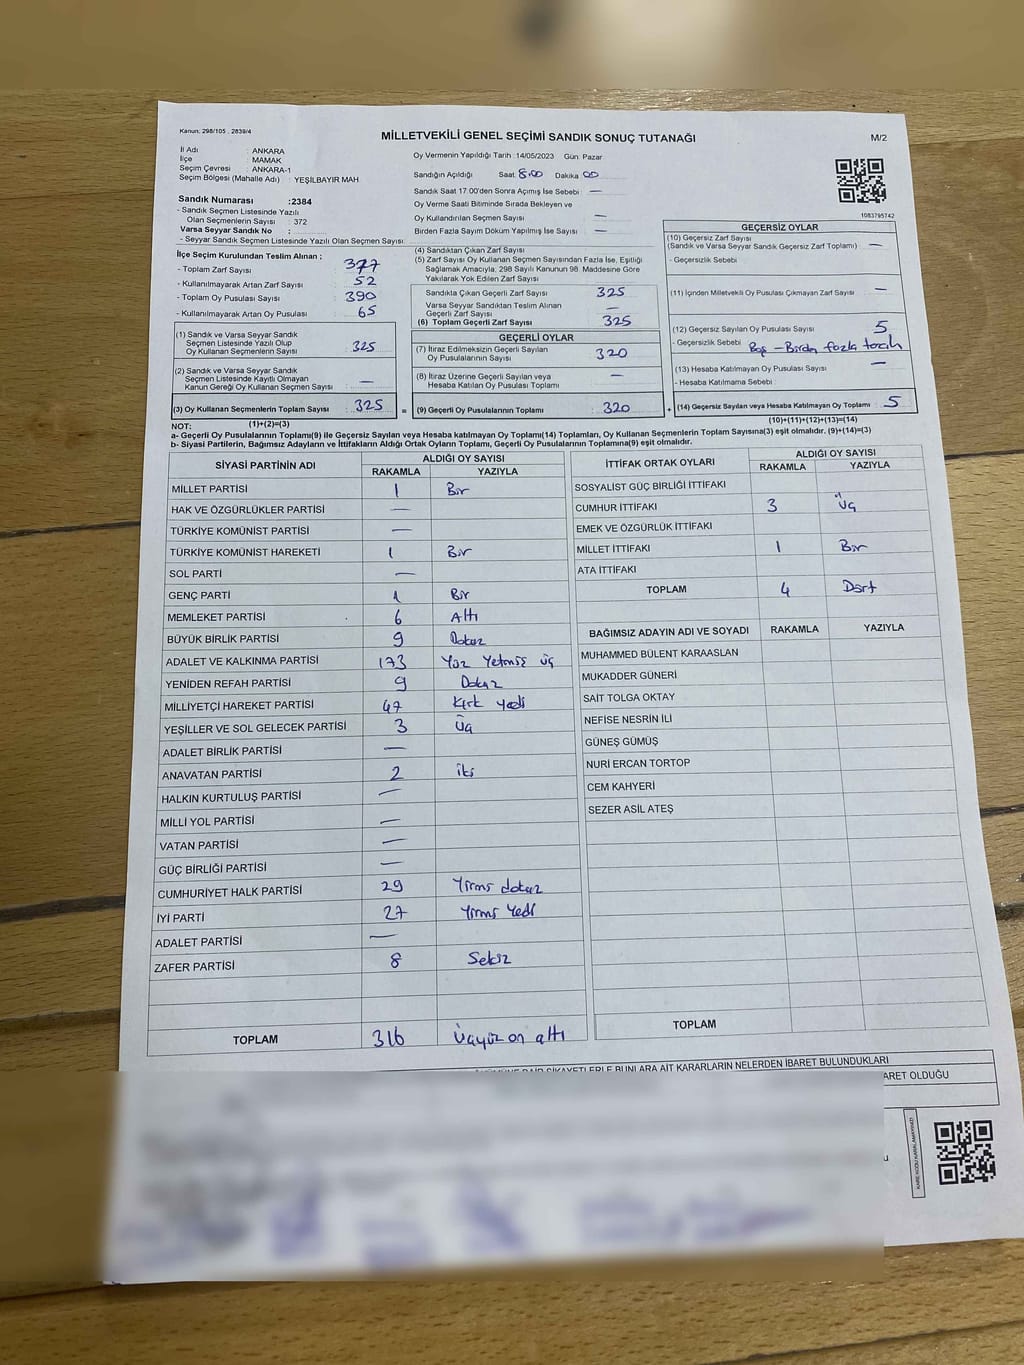 Kanun, 298/105 , 2839/4
MİLLETVEKİLİ GENEL SEÇİMİ SANDIK SONUÇ TUTANAĞI
M/2
İl Adı : ANKARA
İlçe : MAMAK
Seçim Çevresi : ANKARA-1
Seçim Bölgesi (Mahalle Adı) : YEŞİLBAYIR MAH.
Sandık Numarası :2384
- Sandık Seçmen Listesinde Yazılı
Olan Seçmenlerin Sayısı : 372
Varsa Seyyar Sandık No :
- Seyyar Sandık Seçmen Listesinde Yazılı Olan Seçmen Sayısı:
İlçe Seçim Kurulundan Teslim Alınan ;
- Toplam Zarf Sayısı : 377
- Kullanılmayarak Artan Zarf Sayısı : 52
- Toplam Oy Pusulası Sayısı : 390
- Kullanılmayarak Artan Oy Pusulası : 65
(1) Sandık ve Varsa Seyyar Sandık
Seçmen Listesinde Yazılı Olup
Oy Kullanan Seçmenlerin Sayısı : 325
(2) Sandık ve Varsa Seyyar Sandık
Seçmen Listesinde Kayıtlı Olmayan
Kanun Gereği Oy Kullanan Seçmen Sayısı : —
(3) Oy Kullanan Seçmenlerin Toplam Sayısı : 325
(1)+(2)=(3)
Oy Vermenin Yapıldığı Tarih :14/05/2023 Gün: Pazar
Sandığın Açıldığı Saat 8.00 Dakika 00
Sandık Saat 17.00'den Sonra Açımış İse Sebebi : —
Oy Verme Saati Bitiminde Sırada Bekleyen ve
Oy Kullandırılan Seçmen Sayısı : —
Birden Fazla Sayım Döküm Yapılmış İse Sayısı : —
(4) Sandıktan Çıkan Zarf Sayısı
(5) Zarf Sayısı Oy Kullanan Seçmen Sayısından Fazla İse, Eşitliği
Sağlamak Amacıyla, 298 Sayılı Kanunun 98. Maddesine Göre
Yakılarak Yok Edilen Zarf Sayısı
Sandıkla Çıkan Geçerli Zarf Sayısı : 325
Varsa Seyyar Sandıktan Teslim Alınan
Geçerli Zarf Sayısı :
(6) Toplam Geçerli Zarf Sayısı : 325
GEÇERLİ OYLAR
(7) İtiraz Edilmeksizin Geçerli Sayılan
Oy Pusulalarının Sayısı : 320
(8) İtiraz Üzerine Geçerli Sayılan veya
Hesaba Katılan Oy Pusulası Toplamı : —
= (9) Geçerli Oy Pusulalarının Toplamı : 320
1083795742
GEÇERSİZ OYLAR
(10) Geçersiz Zarf Sayısı
(Sandık ve Varsa Seyyar Sandık Geçersiz Zarf Toplamı) : —
- Geçersizlik Sebebi :
(11) İçinden Milletvekili Oy Pusulası Çıkmayan Zarf Sayısı : —
(12) Geçersiz Sayılan Oy Pusulası Sayısı : 5
- Geçersizlik Sebebi : Boş - Birden fazla tercih
(13) Hesaba Katılmayan Oy Pusulası Sayısı : —
- Hesaba Katılmama Sebebi :
+ (14) Geçersiz Sayılan veya Hesaba Katılmayan Oy Toplamı : 5
(10)+(11)+(12)+(13)=(14)
NOT:
a- Geçerli Oy Pusulalarının Toplamı(9) ile Geçersiz Sayılan veya Hesaba katılmayan Oy Toplamı(14) Toplamları, Oy Kullanan Seçmenlerin Toplam Sayısına(3) eşit olmalıdır. (9)+(14)=(3)
b- Siyasi Partilerin, Bağımsız Adayların ve İttifakların Aldığı Oyların Toplamı, Geçerli Oy Pusulalarının Toplamına(9) eşit olmalıdır.
SİYASİ PARTİNİN ADI ALDIĞI OY SAYISI
RAKAMLA YAZIYLA
MİLLET PARTİSİ 1 Bir
HAK VE ÖZGÜRLÜKLER PARTİSİ —
TÜRKİYE KOMÜNİST PARTİSİ —
TÜRKİYE KOMÜNİST HAREKETİ 1 Bir
SOL PARTİ —
GENÇ PARTİ 1 Bir
MEMLEKET PARTİSİ 6 Altı
BÜYÜK BİRLİK PARTİSİ 9 Dokuz
ADALET VE KALKINMA PARTİSİ 173 Yüz Yetmiş üç
YENİDEN REFAH PARTİSİ 9 Dokuz
MİLLİYETÇİ HAREKET PARTİSİ 47 Kırk yedi
YEŞİLLER VE SOL GELECEK PARTİSİ 3 Üç
ADALET BİRLİK PARTİSİ —
ANAVATAN PARTİSİ 2 iki
HALKIN KURTULUŞ PARTİSİ —
MİLLİ YOL PARTİSİ —
VATAN PARTİSİ —
GÜÇ BİRLİĞİ PARTİSİ —
CUMHURİYET HALK PARTİSİ 29 Yirmi dokuz
İYİ PARTİ 27 Yirmi Yedi
ADALET PARTİSİ —
ZAFER PARTİSİ 8 Sekiz
TOPLAM 316 Üçyüz on altı
İTTİFAK ORTAK OYLARI ALDIĞI OY SAYISI
RAKAMLA YAZIYLA
SOSYALİST GÜÇ BİRLİĞİ İTTİFAKI
CUMHUR İTTİFAKI 3 Üç
EMEK VE ÖZGÜRLÜK İTTİFAKI
MİLLET İTTİFAKI 1 Bir
ATA İTTİFAKI
TOPLAM 4 Dört
BAĞIMSIZ ADAYIN ADI VE SOYADI RAKAMLA YAZIYLA
MUHAMMED BÜLENT KARAASLAN
MUKADDER GÜNERİ
SAİT TOLGA OKTAY
NEFİSE NESRİN İLİ
GÜNEŞ GÜMÜŞ
NURİ ERCAN TORTOP
CEM KAHYERİ
SEZER ASİL ATEŞ
TOPLAM
ŞİKAYETLERLE BUNLARA AİT KARARLARIN NELERDEN İBARET BULUNDUKLARI
OLDUĞU